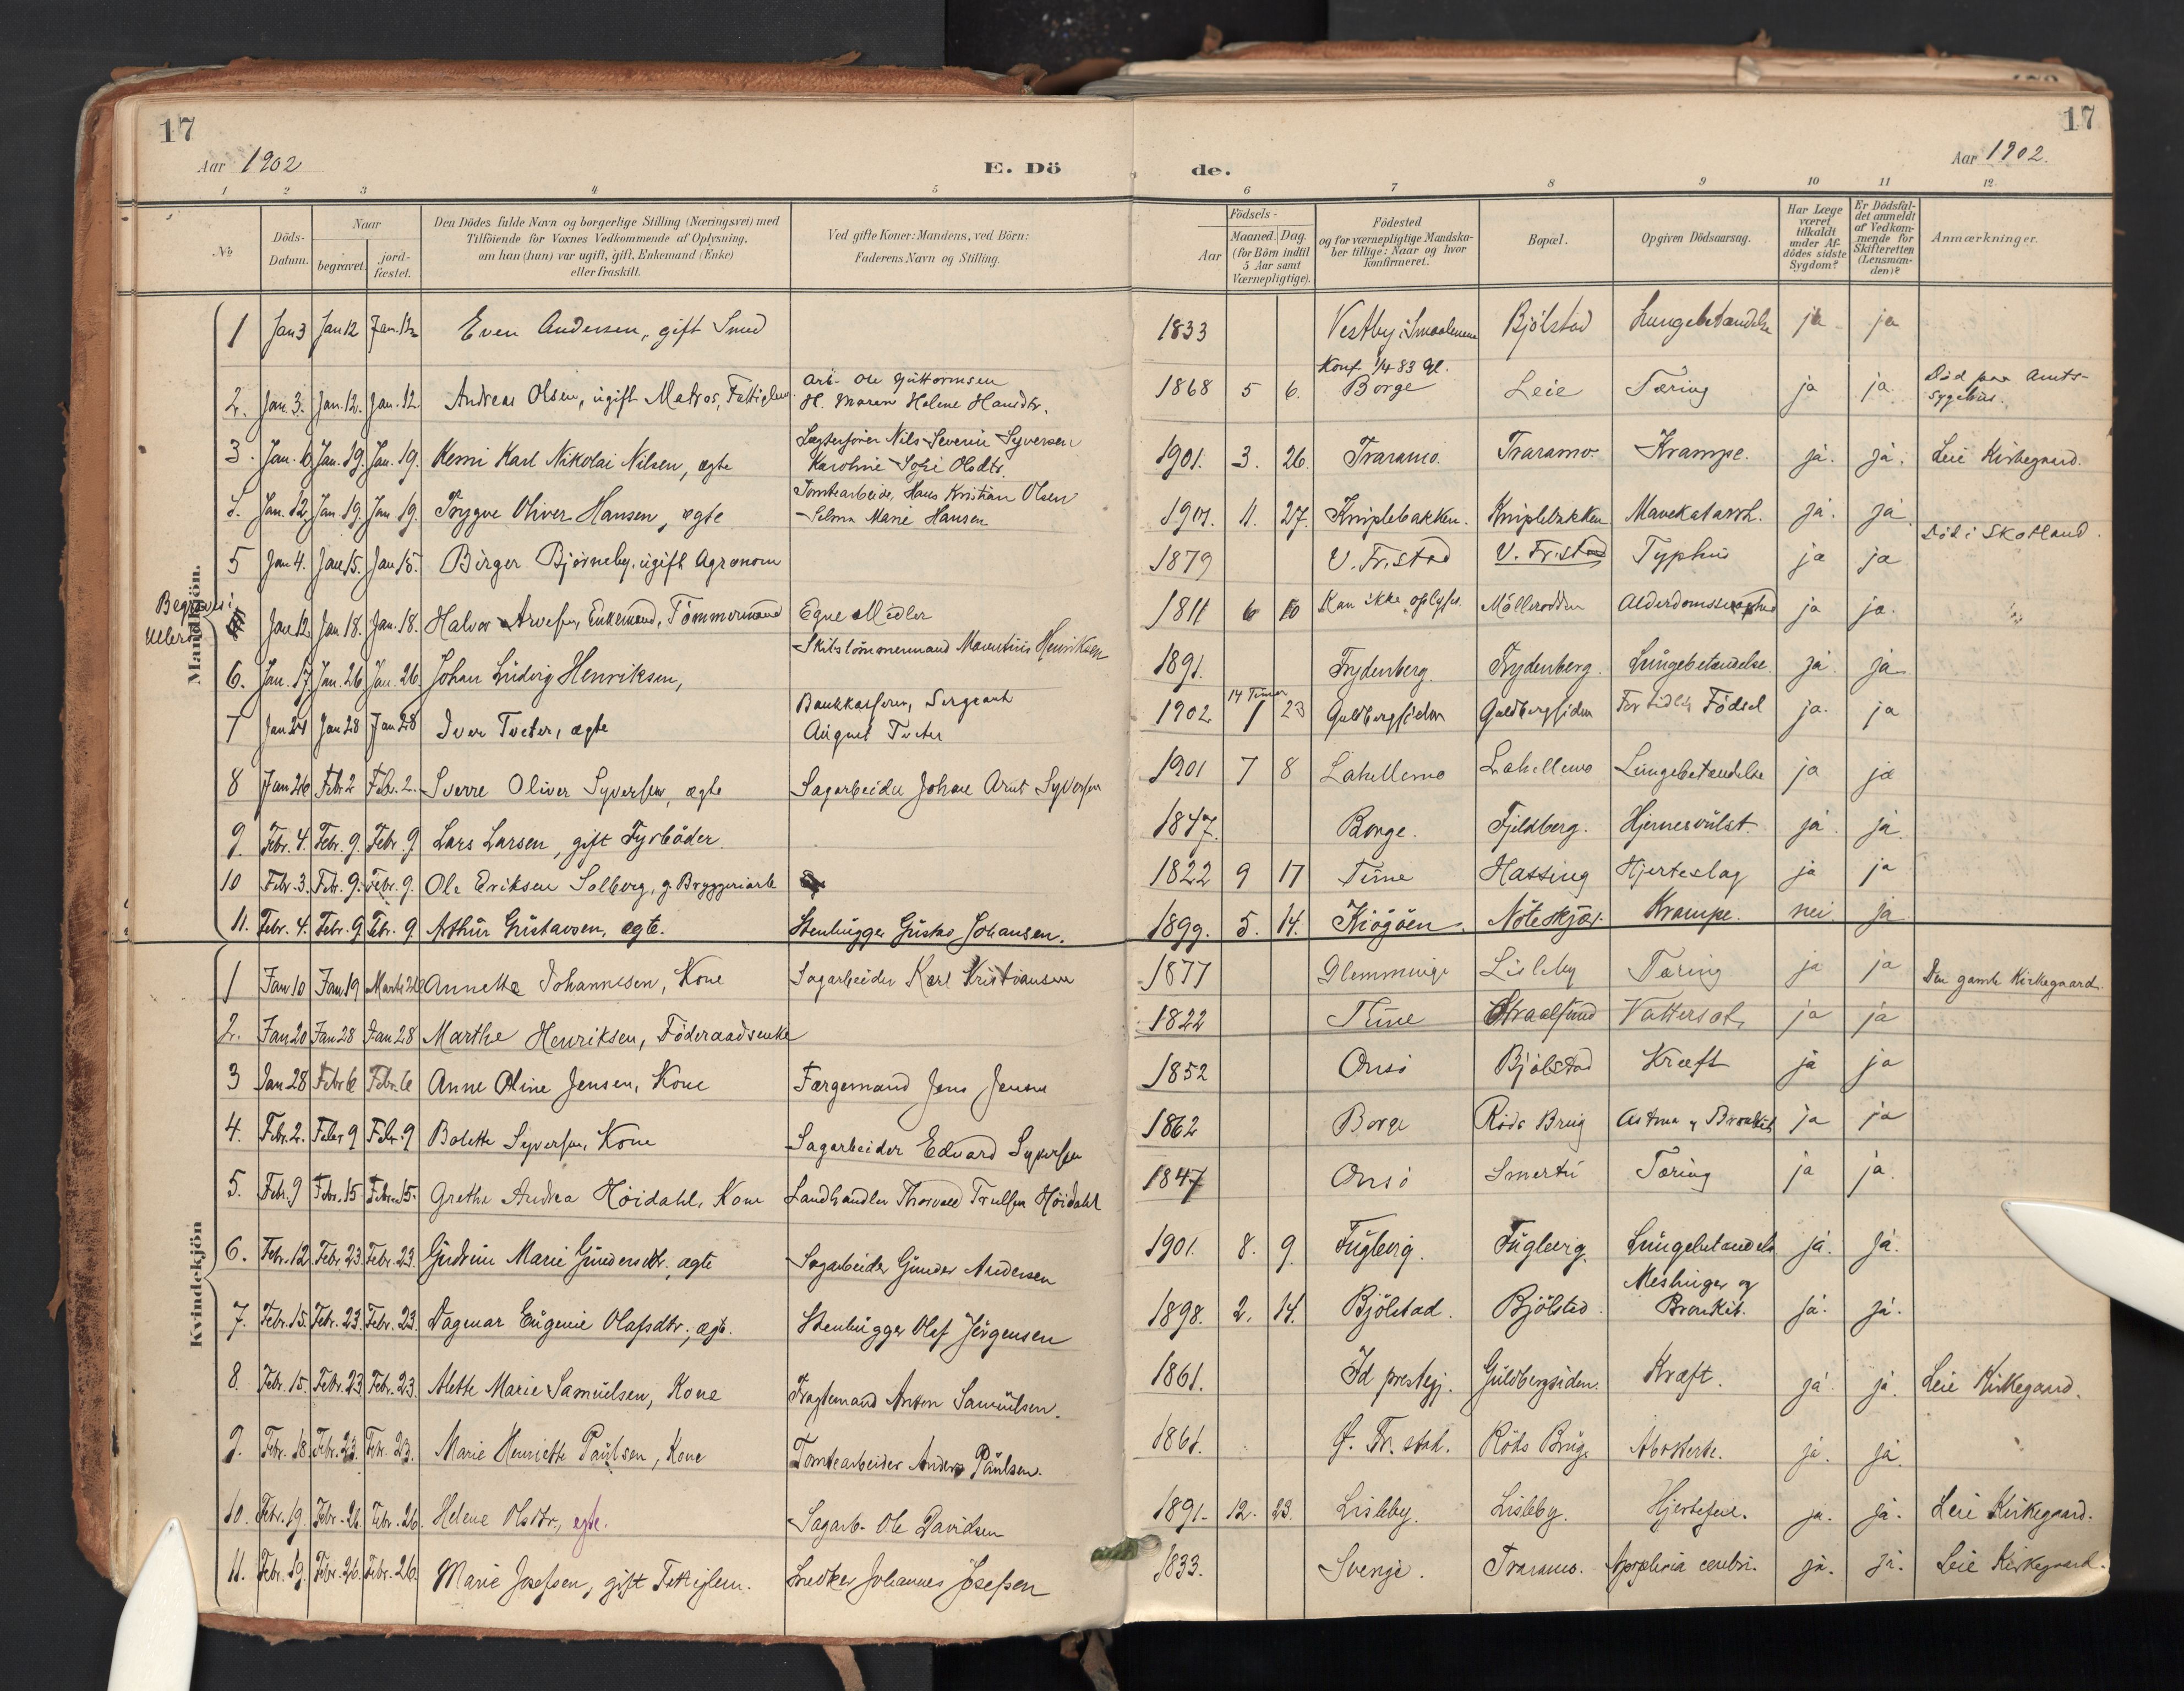 17
17
Aar 1902
E. Dö
de.
Aar 1902.
1 2 3 4 5 6 7 8 9 10 11 12
No
Döds-Datum.
Naar
begravet.
jord-fæstet.
Den Dödes fulde Navn og borgerlige Stilling (Næringsvei) med
Tilföiende for Voxnes Vedkommende af Oplysning,
om han (hun) var ugift, gift, Enkemand (Enke)
eller fraskilt.
Ved gifte Koner: Mandens, ved Börn:
Faderens Navn og Stilling.
Födsels-
Aar
Maaned. Dag.
(for Börn indtil
5 Aar samt
Værnepligtige).
Födested
og for værnepligtige Mandska-
ber tillige: Naar og hvor
konfirmeret.
Bopæl.
Opgiven Dödsaarsag.
Har Læge
været
tilkaldt
under Af-
dödes sidste
Sygdom?
Er Dödsfal-
det anmeldt
af Vedkom-
mende for
Skifteretten
(Lensman-
den)?
Anmærkninger.
Mandkjön.
1 Jan 3 Jan 12 Jan. 12 Even Andersen, gift Smed 1833 Vestby i Smaalenene Bjölstad Lungebetændelse ja ja
2. Jan. 3. Jan. 12. Jan. 12. Andreas Olsen, ugift Matros, Fattiglem. Arb. Ole Guttormsen
H. Maren Helene Hansdtr. 1868 5 6. Konf. 1/4 83 Gl.
Borge Leie Tæring ja ja. Död paa Amts-
sygehus.
3. Jan. 6. Jan. 19. Jan. 19. Remi Karl Nikolai Nilsen, ægte Lægterfører Nils Severin Syversen
Karoline Sofie Olsdtr. 1901. 3. 26. Traramo. Traramo. Krampe. ja. ja. Leie Kirkegaard.
4. Jan. 12. Jan. 19. Jan. 19. Trygve Oliver Hansen, ægte Tomtearbeider Hans Kristian Olsen
Selma Marie Hansen 1901. 11. 27. Kniplebakken. Kniplebakken Mavekatarrh. ja. ja.
5 Jan 4. Jan 15. Jan 15. Birger Bjørneby, ugift Agronom 1879 V. Fr.stad V. Fr.stad Typhus ja ja Död i Skotland.
Begravet i
Jan 12. Jan 18. Jan. 18. Halvor Arvesen, Enkemand, Tömmermand Egne Midler 1811 6 10 Kan ikke oplyses. Mölleroddn ja ja.
6. Jan. 17 Jan. 26 Jan. 26. Johan Ludvig Henriksen, Skibstömmermand Henriksen 1891. Frydenberg. Frydenberg. Lungebetændelse. ja ja
7 Jan 24 Jan 28 Jan 28 Iver Tveter, ægte Bankkasserer, Sergeant
August Tveter 1902 14 Timer
1 23 Guldbergsiden Guldbergsiden For tidlig Födsel ja. ja
8 Jan 26 Febr 2 Febr. 2. Sverre Oliver Syversen, ægte Sagarbeider Johan Arnt Syversen 1901 7 8 Lahellemo Lahellemo Lungebetændelse ja ja
9. Febr. 4. Febr. 9. Febr. 9 Lars Larsen, gift Fyrböder. 1847. Borge. Fjeldberg. Hjernesvulst. ja. ja.
10 Febr. 3. Febr. 9. Febr. 9. Ole Eriksen Solberg, g. Bryggeriarb 1822 9 17 Tune Hassing Hjerteslag ja ja
11. Febr. 4. Febr. 9. Febr. 9 Arthur Gustavsen, ægte. Stenhugger Gustav Johansen. 1899. 5. 14. Kiögöen. Nöteskjær. Krampe. nei. ja
Kvindekjön
1 Jan 10 Jan 19 Annette Johannesen, Kone Sagarbeider Karl Kristiansen 1877 Glemminge Lisleby Tæring ja ja Den gamle Kirkegaard.
2. Jan 20 Jan 28 Jan 28 Marthe Henriksen, Föderaadsenke 1822 Tune Straalsund Vattersot. ja ja
3 Jan 28 Febr 6 Febr. 6 Anne Oline Jensen, Kone Færgemand Jens Jensen 1852 Onsö Bjölstad Kræft ja ja
4. Febr. 2. Febr 9 Febr. 9 Bolette Syversen, Kone Sagarbeider Edvard Syversen 1862 Borge Röds Brug Astma og Bronkit ja ja
5. Febr. 9 Febr. 15 Febr. 15. Grethe Andrea Höidahl, Kone Landhandler Thorvald Trulsen Höidahl 1847 Onsö Smertu Tæring ja ja.
6. Febr. 12 Febr. 23. Febr. 23. Gudrun Marie Gundersdtr., ægte Sagarbeider Gunder Andersen 1901. 8. 9. Fuglevig. Fuglevig. Lungebetændelse ja. ja.
7. Febr. 15. Febr. 23. Febr. 23. Dagmar Eugenie Olafsdtr., ægt. Stenhugger Olaf Jörgensen 1898. 2. 14. Bjölstad. Bjölstad. Meslinger og
Bronkit. ja. ja.
8. Febr. 15. Febr. 23 Febr. 23. Alette Marie Samuelsen, Kone Fragtemand Anton Samuelsen. 1861. Id prestegj. Guldbergsiden. Kræft. ja. ja. Leie Kirkegaard.
9. Febr. 18. Febr. 23. Febr. 23. Marie Henriette Paulsen, Kone Tomtearbeider Anders Paulsen. 1861. G. Fr. stad. Röds Brug. Abortente. ja. ja.
10. Febr. 19. Febr. 26. Febr. 26. Helene Olsdtr., ægte. Sagarb. Ole Davidsen 1891. 12. 23. Lisleby. Lisleby. Hjertefeil. ja. ja. Leie Kirkegaard.
11. Febr. 19. Febr. 26. Febr. 26. Marie Josefsen, gift Fattiglem. Snedker Johannes Josefsen 1833. Sverige. Traramo. Apoplexia cerebri. ja. ja. Leie Kirkegaard.